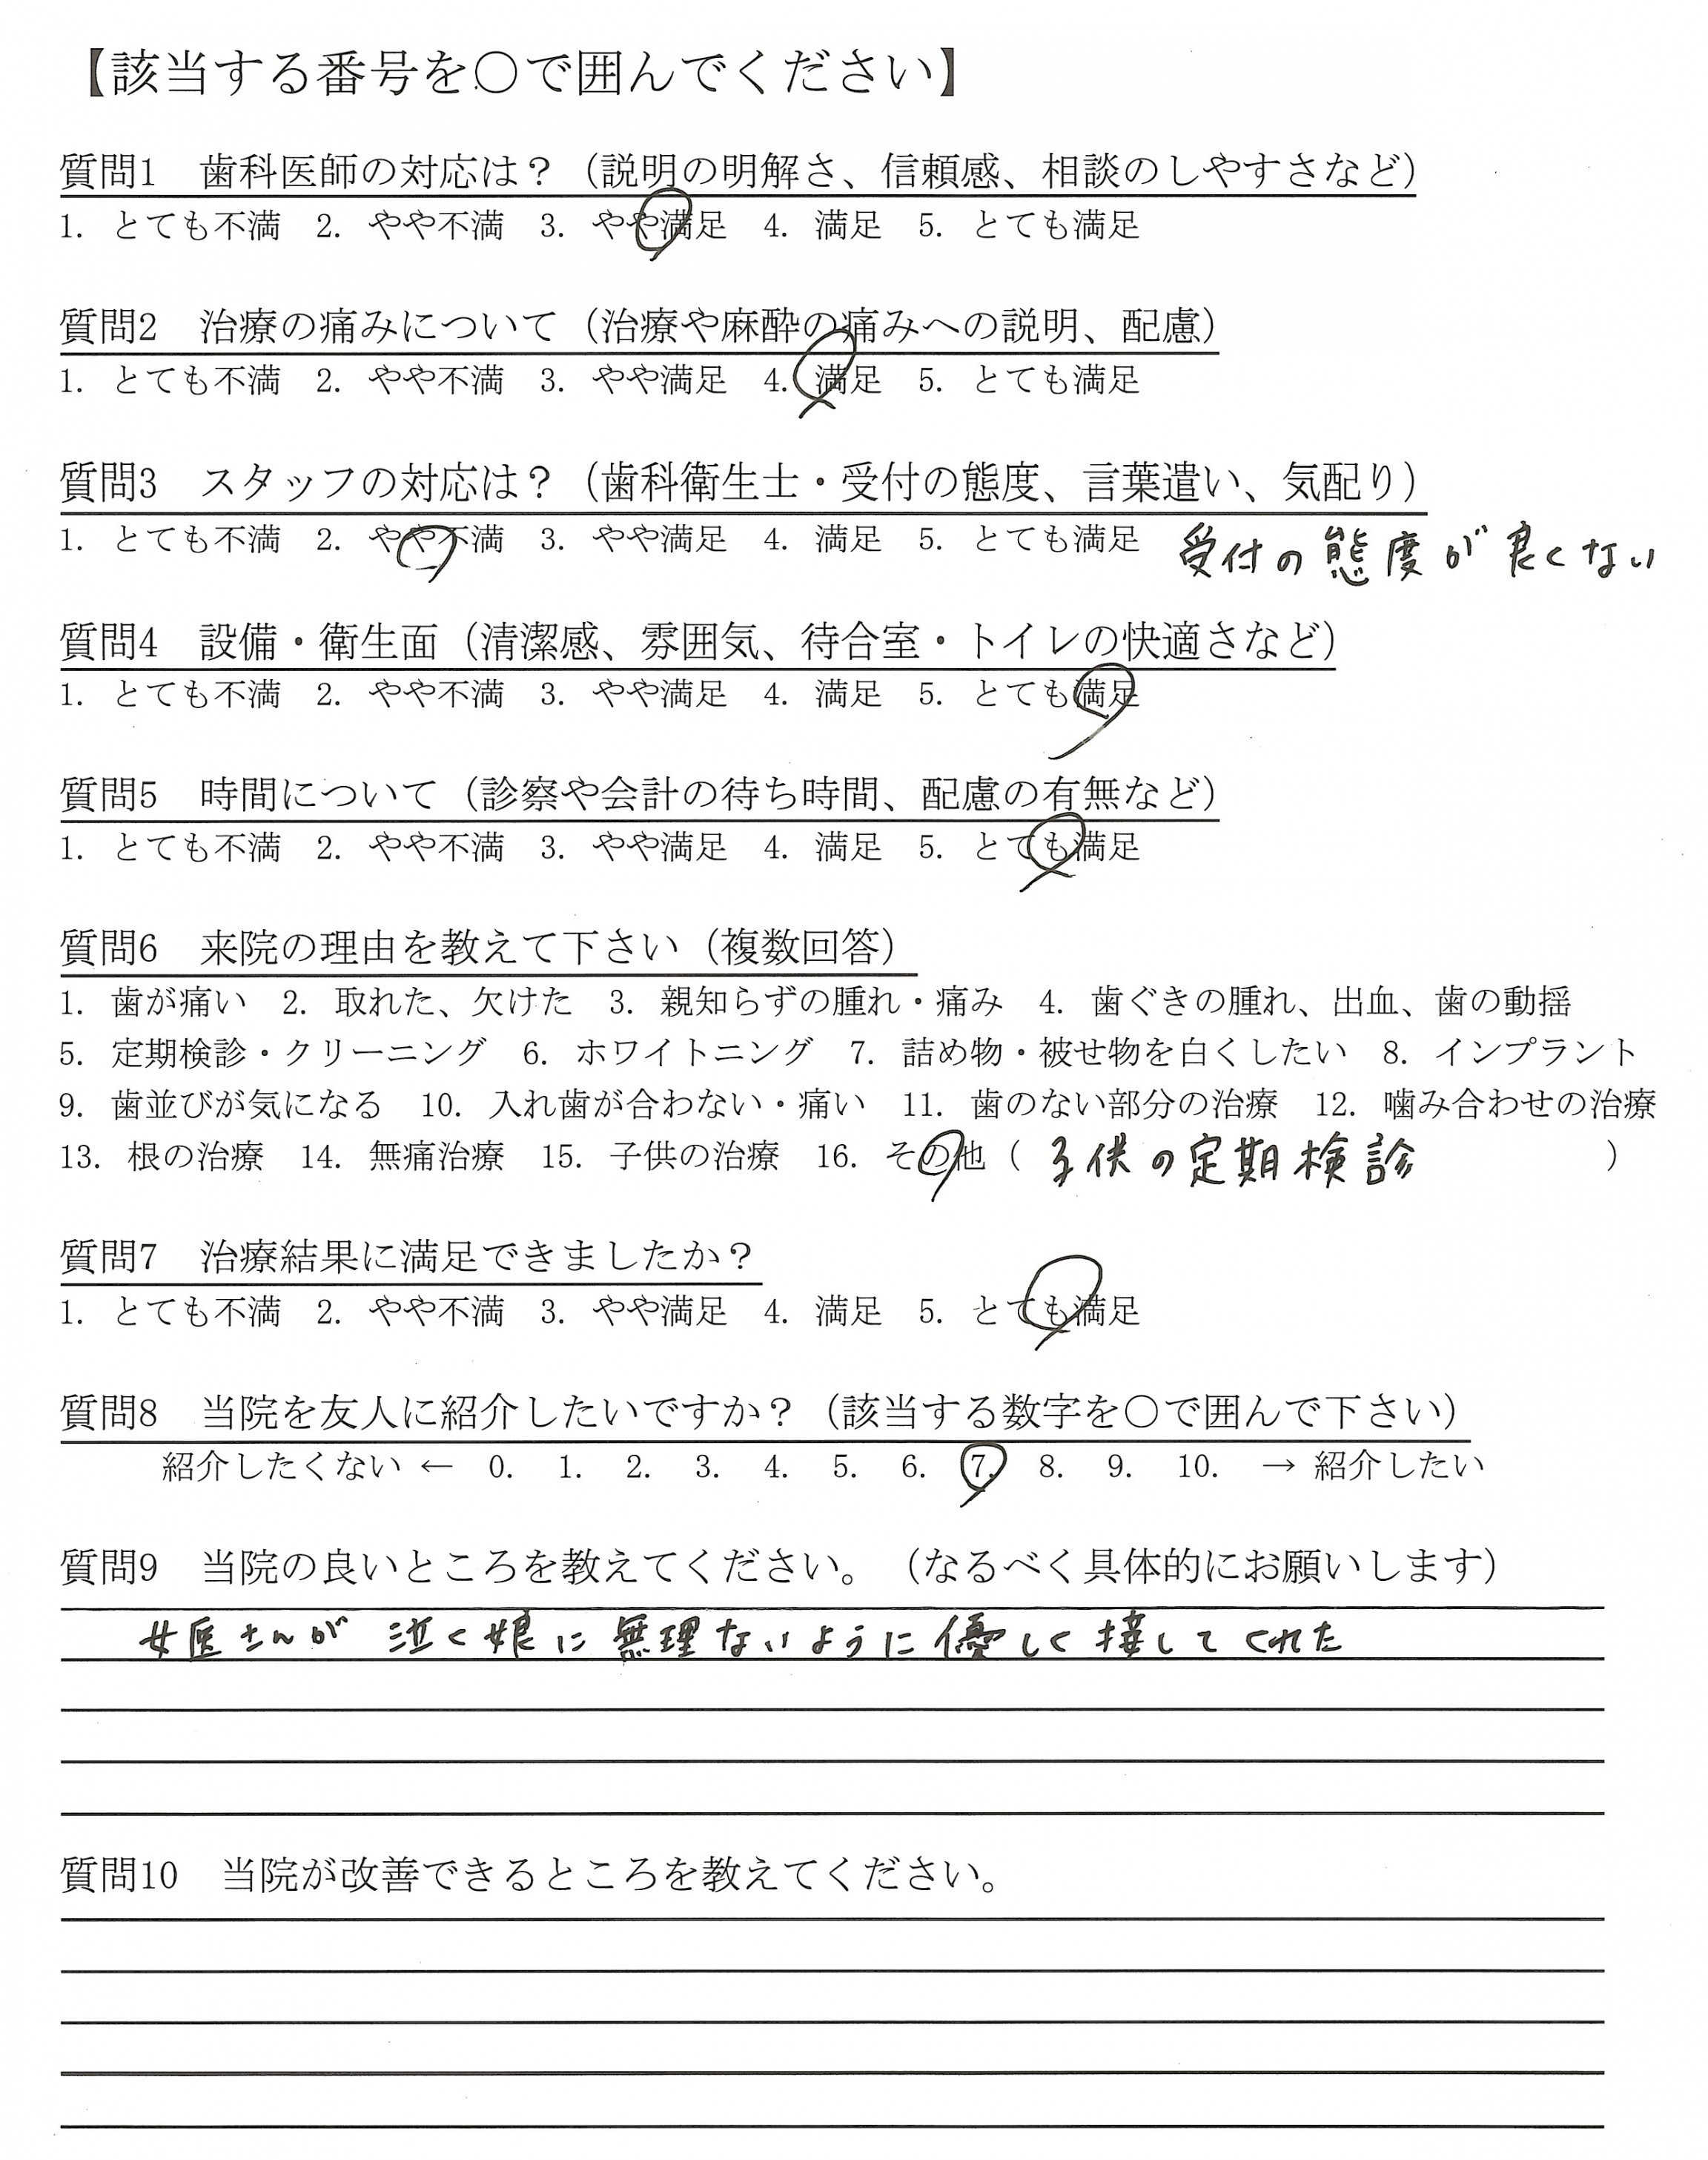 【該当する番号を○で囲んでください】
質問1　歯科医師の対応は？（説明の明解さ、信頼感、相談のしやすさなど）
1. とても不満　2. やや不満　3. やや満足　4. 満足　5. とても満足
質問2　治療の痛みについて（治療や麻酔の痛みへの説明、配慮）
1. とても不満　2. やや不満　3. やや満足　4. 満足　5. とても満足
質問3　スタッフの対応は？（歯科衛生士・受付の態度、言葉遣い、気配り）
1. とても不満　2. やや不満　3. やや満足　4. 満足　5. とても満足　受付の態度が良くない
質問4　設備・衛生面（清潔感、雰囲気、待合室・トイレの快適さなど）
1. とても不満　2. やや不満　3. やや満足　4. 満足　5. とても満足
質問5　時間について（診察や会計の待ち時間、配慮の有無など）
1. とても不満　2. やや不満　3. やや満足　4. 満足　5. とても満足
質問6　来院の理由を教えて下さい（複数回答）
1. 歯が痛い　2. 取れた、欠けた　3. 親知らずの腫れ・痛み　4. 歯ぐきの腫れ、出血、歯の動揺
5. 定期検診・クリーニング　6. ホワイトニング　7. 詰め物・被せ物を白くしたい　8. インプラント
9. 歯並びが気になる　10. 入れ歯が合わない・痛い　11. 歯のない部分の治療　12. 噛み合わせの治療
13. 根の治療　14. 無痛治療　15. 子供の治療　16. その他（ 子供の定期検診 ）
質問7　治療結果に満足できましたか？
1. とても不満　2. やや不満　3. やや満足　4. 満足　5. とても満足
質問8　当院を友人に紹介したいですか？（該当する数字を○で囲んで下さい）
紹介したくない ← 0. 1. 2. 3. 4. 5. 6. 7. 8. 9. 10. → 紹介したい
質問9　当院の良いところを教えてください。（なるべく具体的にお願いします）
女医さんが 泣く娘に無理ないように優しく接してくれた
質問10　当院が改善できるところを教えてください。